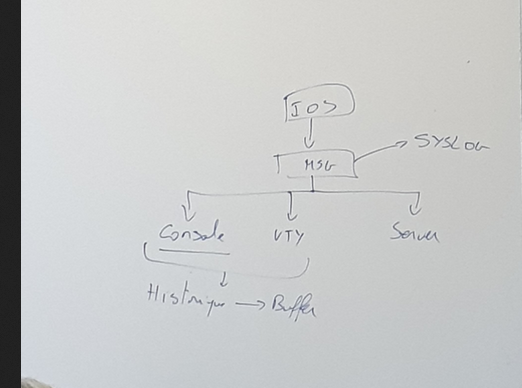 IOS
MSG
SYSLOG
Console VTY Server
Historique → Buffer